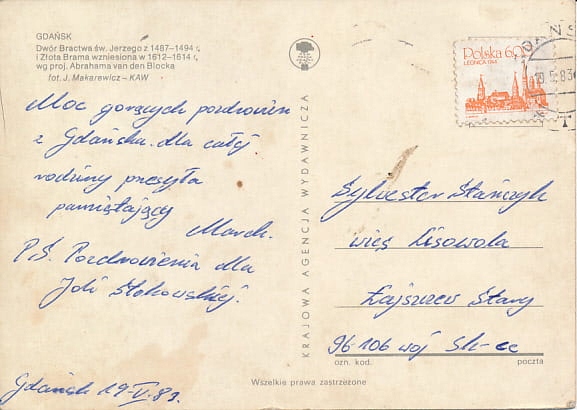 GDAŃSK
Dwór Bractwa św. Jerzego z 1487–1494 r.
i Złota Brama wzniesiona w 1612–1614 r.
wg proj. Abrahama van den Blocka
fot. J. Makarewicz – KAW
Moc gorących pozdrowień
z Gdańska dla całej
rodziny przesyła
pamiętający
Marek.
P.S. Pozdrowienia dla
Joli
Gdańsk 19-V-83.
KRAJOWA AGENCJA WYDAWNICZA
Polska 6.00
LEGNICA 1744
Sylwester Stańczyk
wieś Lisowola
Łajszczew Stary
96-106 woj Sk-ce
ozn. kod.
poczta
Wszelkie prawa zastrzeżone